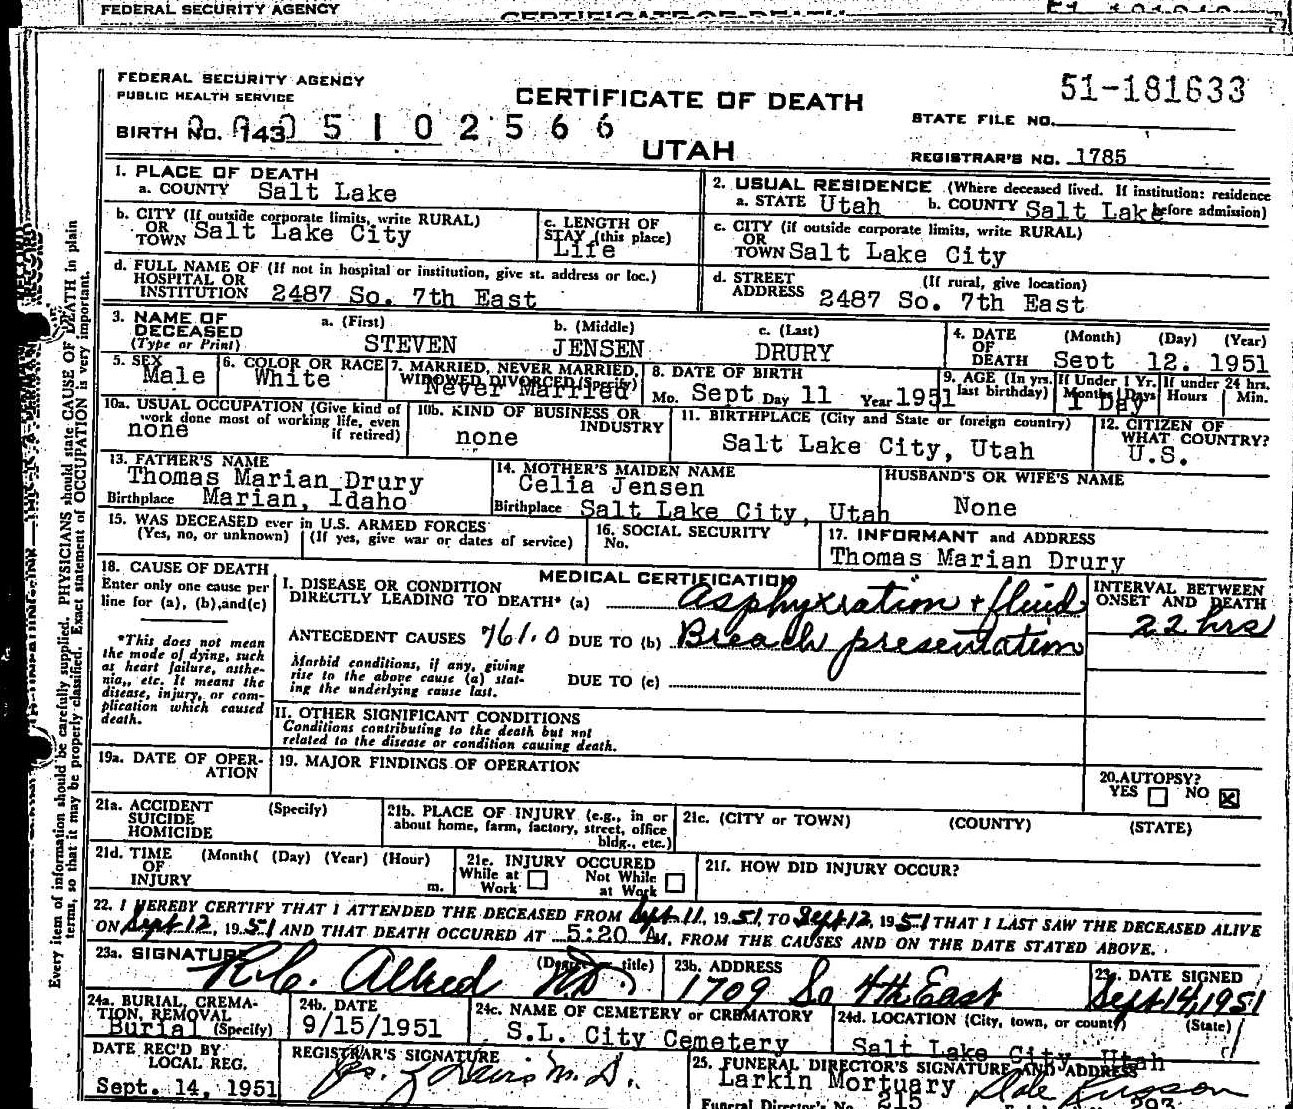 FEDERAL SECURITY AGENCY
CERTIFICATE OF DEATH
FEDERAL SECURITY AGENCY
PUBLIC HEALTH SERVICE
CERTIFICATE OF DEATH
51-181633
STATE FILE NO.
BIRTH NO. 143 05102566
UTAH
REGISTRAR'S NO. 1785
1. PLACE OF DEATH
a. COUNTY Salt Lake
2. USUAL RESIDENCE (Where deceased lived. If institution: residence before admission)
a. STATE Utah b. COUNTY Salt Lake
b. CITY (If outside corporate limits, write RURAL)
OR TOWN Salt Lake City
c. LENGTH OF STAY (this place)
Life
c. CITY (if outside corporate limits, write RURAL)
OR
TOWN Salt Lake City
d. FULL NAME OF (If not in hospital or institution, give st. address or loc.)
HOSPITAL OR
INSTITUTION 2487 So. 7th East
d. STREET ADDRESS (If rural, give location)
2487 So. 7th East
3. NAME OF DECEASED
(Type or Print)
a. (First) b. (Middle) c. (Last)
STEVEN JENSEN DRURY
4. DATE OF DEATH (Month) (Day) (Year)
Sept 12. 1951
5. SEX
Male
6. COLOR OR RACE
White
7. MARRIED, NEVER MARRIED, WIDOWED DIVORCED (Specify)
Never Married
8. DATE OF BIRTH
Mo. Sept Day 11 Year 1951
9. AGE (In yrs. last birthday)
If Under 1 Yr. Months Days
1 Day
If under 24 hrs. Hours Min.
10a. USUAL OCCUPATION (Give kind of work done most of working life, even if retired)
none
10b. KIND OF BUSINESS OR INDUSTRY
none
11. BIRTHPLACE (City and State or foreign country)
Salt Lake City, Utah
12. CITIZEN OF WHAT COUNTRY?
U.S.
13. FATHER'S NAME
Thomas Marian Drury
Birthplace Marian, Idaho
14. MOTHER'S MAIDEN NAME
Celia Jensen
Birthplace Salt Lake City, Utah
HUSBAND'S OR WIFE'S NAME
None
15. WAS DECEASED ever in U.S. ARMED FORCES
(Yes, no, or unknown) (If yes, give war or dates of service)
16. SOCIAL SECURITY
No.
17. INFORMANT and ADDRESS
Thomas Marian Drury
18. CAUSE OF DEATH
Enter only one cause per line for (a), (b), and (c)
*This does not mean the mode of dying, such as heart failure, asthenia,, etc. It means the disease, injury, or complication which caused death.
MEDICAL CERTIFICATION
I. DISEASE OR CONDITION
DIRECTLY LEADING TO DEATH* (a) Asphyxsiation + fluid
INTERVAL BETWEEN ONSET AND DEATH
22 hrs
ANTECEDENT CAUSES 761.0 DUE TO (b) Breach presentation
Morbid conditions, if any, giving rise to the above cause (a) stating the underlying cause last.
DUE TO (c)
II. OTHER SIGNIFICANT CONDITIONS
Conditions contributing to the death but not related to the disease or condition causing death.
19a. DATE OF OPERATION
19. MAJOR FINDINGS OF OPERATION
20. AUTOPSY?
YES NO X
21a. ACCIDENT SUICIDE HOMICIDE (Specify)
21b. PLACE OF INJURY (e.g., in or about home, farm, factory, street, office bldg., etc.)
21c. (CITY or TOWN) (COUNTY) (STATE)
21d. TIME OF INJURY (Month( (Day) (Year) (Hour)
m.
21e. INJURY OCCURED
While at Work Not While at Work
21f. HOW DID INJURY OCCUR?
22. I HEREBY CERTIFY THAT I ATTENDED THE DECEASED FROM Sept. 11, 1951, TO Sept 12, 1951 THAT I LAST SAW THE DECEASED ALIVE
ON Sept. 12, 1951 AND THAT DEATH OCCURED AT 5:20 A M, FROM THE CAUSES AND ON THE DATE STATED ABOVE.
23a. SIGNATURE (Degree or title)
R.C. Allred M.D.
23b. ADDRESS
1709 So 4th East
23. DATE SIGNED
Sept 14, 1951
24a. BURIAL, CREMATION, REMOVAL
Burial (Specify)
24b. DATE
9/15/1951
24c. NAME OF CEMETERY or CREMATORY
S.L. City Cemetery
24d. LOCATION (City, town, or county) (State)
Salt Lake City, Utah
DATE REC'D BY LOCAL REG.
Sept. 14, 1951
REGISTRAR'S SIGNATURE
25. FUNERAL DIRECTOR'S SIGNATURE AND ADDRESS
Larkin Mortuary
Funeral Director's No. 215
293
Every item of information should be carefully supplied. PHYSICIANS should state CAUSE OF DEATH in plain
terms, so that it may be properly classified. Exact statement of OCCUPATION is very important.